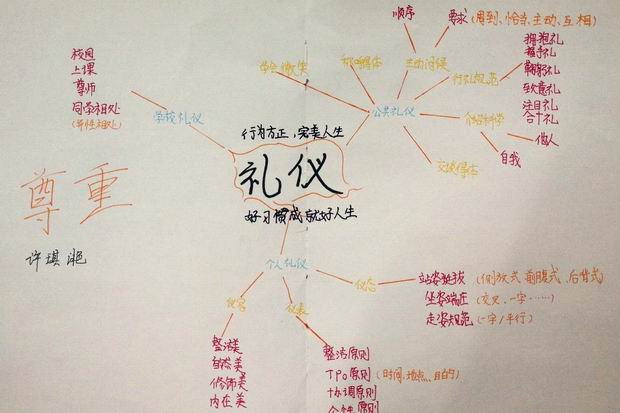 顺序
要求(周到、恰当、主动、互相)
主动问候
学会微笑
称呼得体
行礼规范
拥抱礼
握手礼
鞠躬礼
致意礼
注目礼
合十礼
公共礼仪
介绍科学
他人
自我
交谈得体
校园
上课
尊师
同学相处
(异性相处)
学校礼仪
行为方正,完美人生
礼仪
好习惯成就好人生
尊重
许琪
个人礼仪
仪态
站姿挺拔(侧放式、前腹式、后背式)
坐姿端庄(交叉、一字……)
走姿规范(一字/平行)
仪容
整洁美
自然美
修饰美
内在美
仪表
整洁原则
TPO原则(时间、地点、目的)
协调原则
个性原则